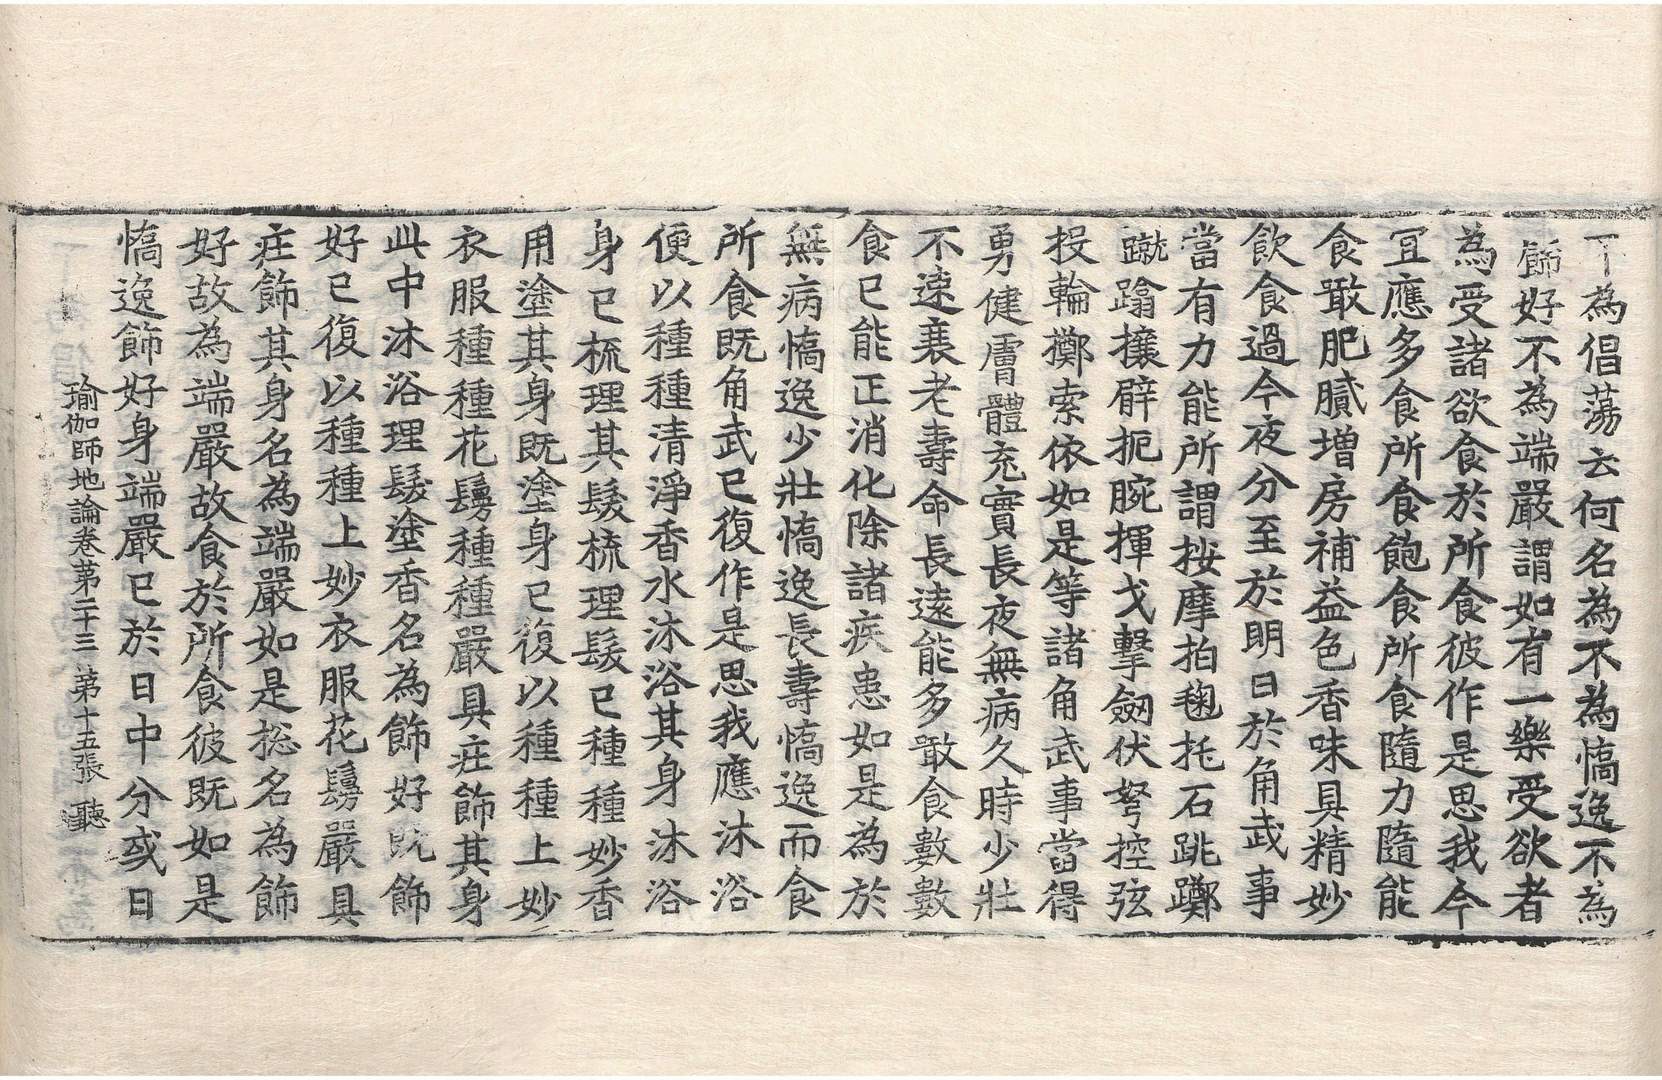 不為倡蕩云何名為不為憍逸不為
飾好不為端嚴謂如有一樂受欲者
為受諸欲食於所食彼作是思我今
宜應多食所食飽食所食隨力隨能
食噉肥膩增房補益色香味具精妙
飲食過今夜分至於明日於角武事
當有力能所謂按摩拍毱托石跳躑
蹴蹹攘臂扼腕揮戈擊劒伏弩控弦
投輪擲索依如是等諸角武事當得
勇健膚體充實長夜無病久時少壯
不速衰老壽命長遠能多噉食數數
食已能正消化除諸疾患如是為於
無病憍逸少壯憍逸長壽憍逸而食
所食既角武已復作是思我應沐浴
便以種種清淨香水沐浴其身沐浴
身已梳理其髮梳理髮已種種妙香
用塗其身既塗身已復以種種上妙
衣服種種花鬘種種嚴具莊飾其身
此中沐浴理髮塗香名為飾好既飾
好已復以種種上妙衣服花鬘嚴具
莊飾其身名為端嚴如是捴名為飾
好故為端嚴故食於所食彼既如是
憍逸飾好身端嚴已於日中分或日
瑜伽師地論卷第二十三 第十五張 聽